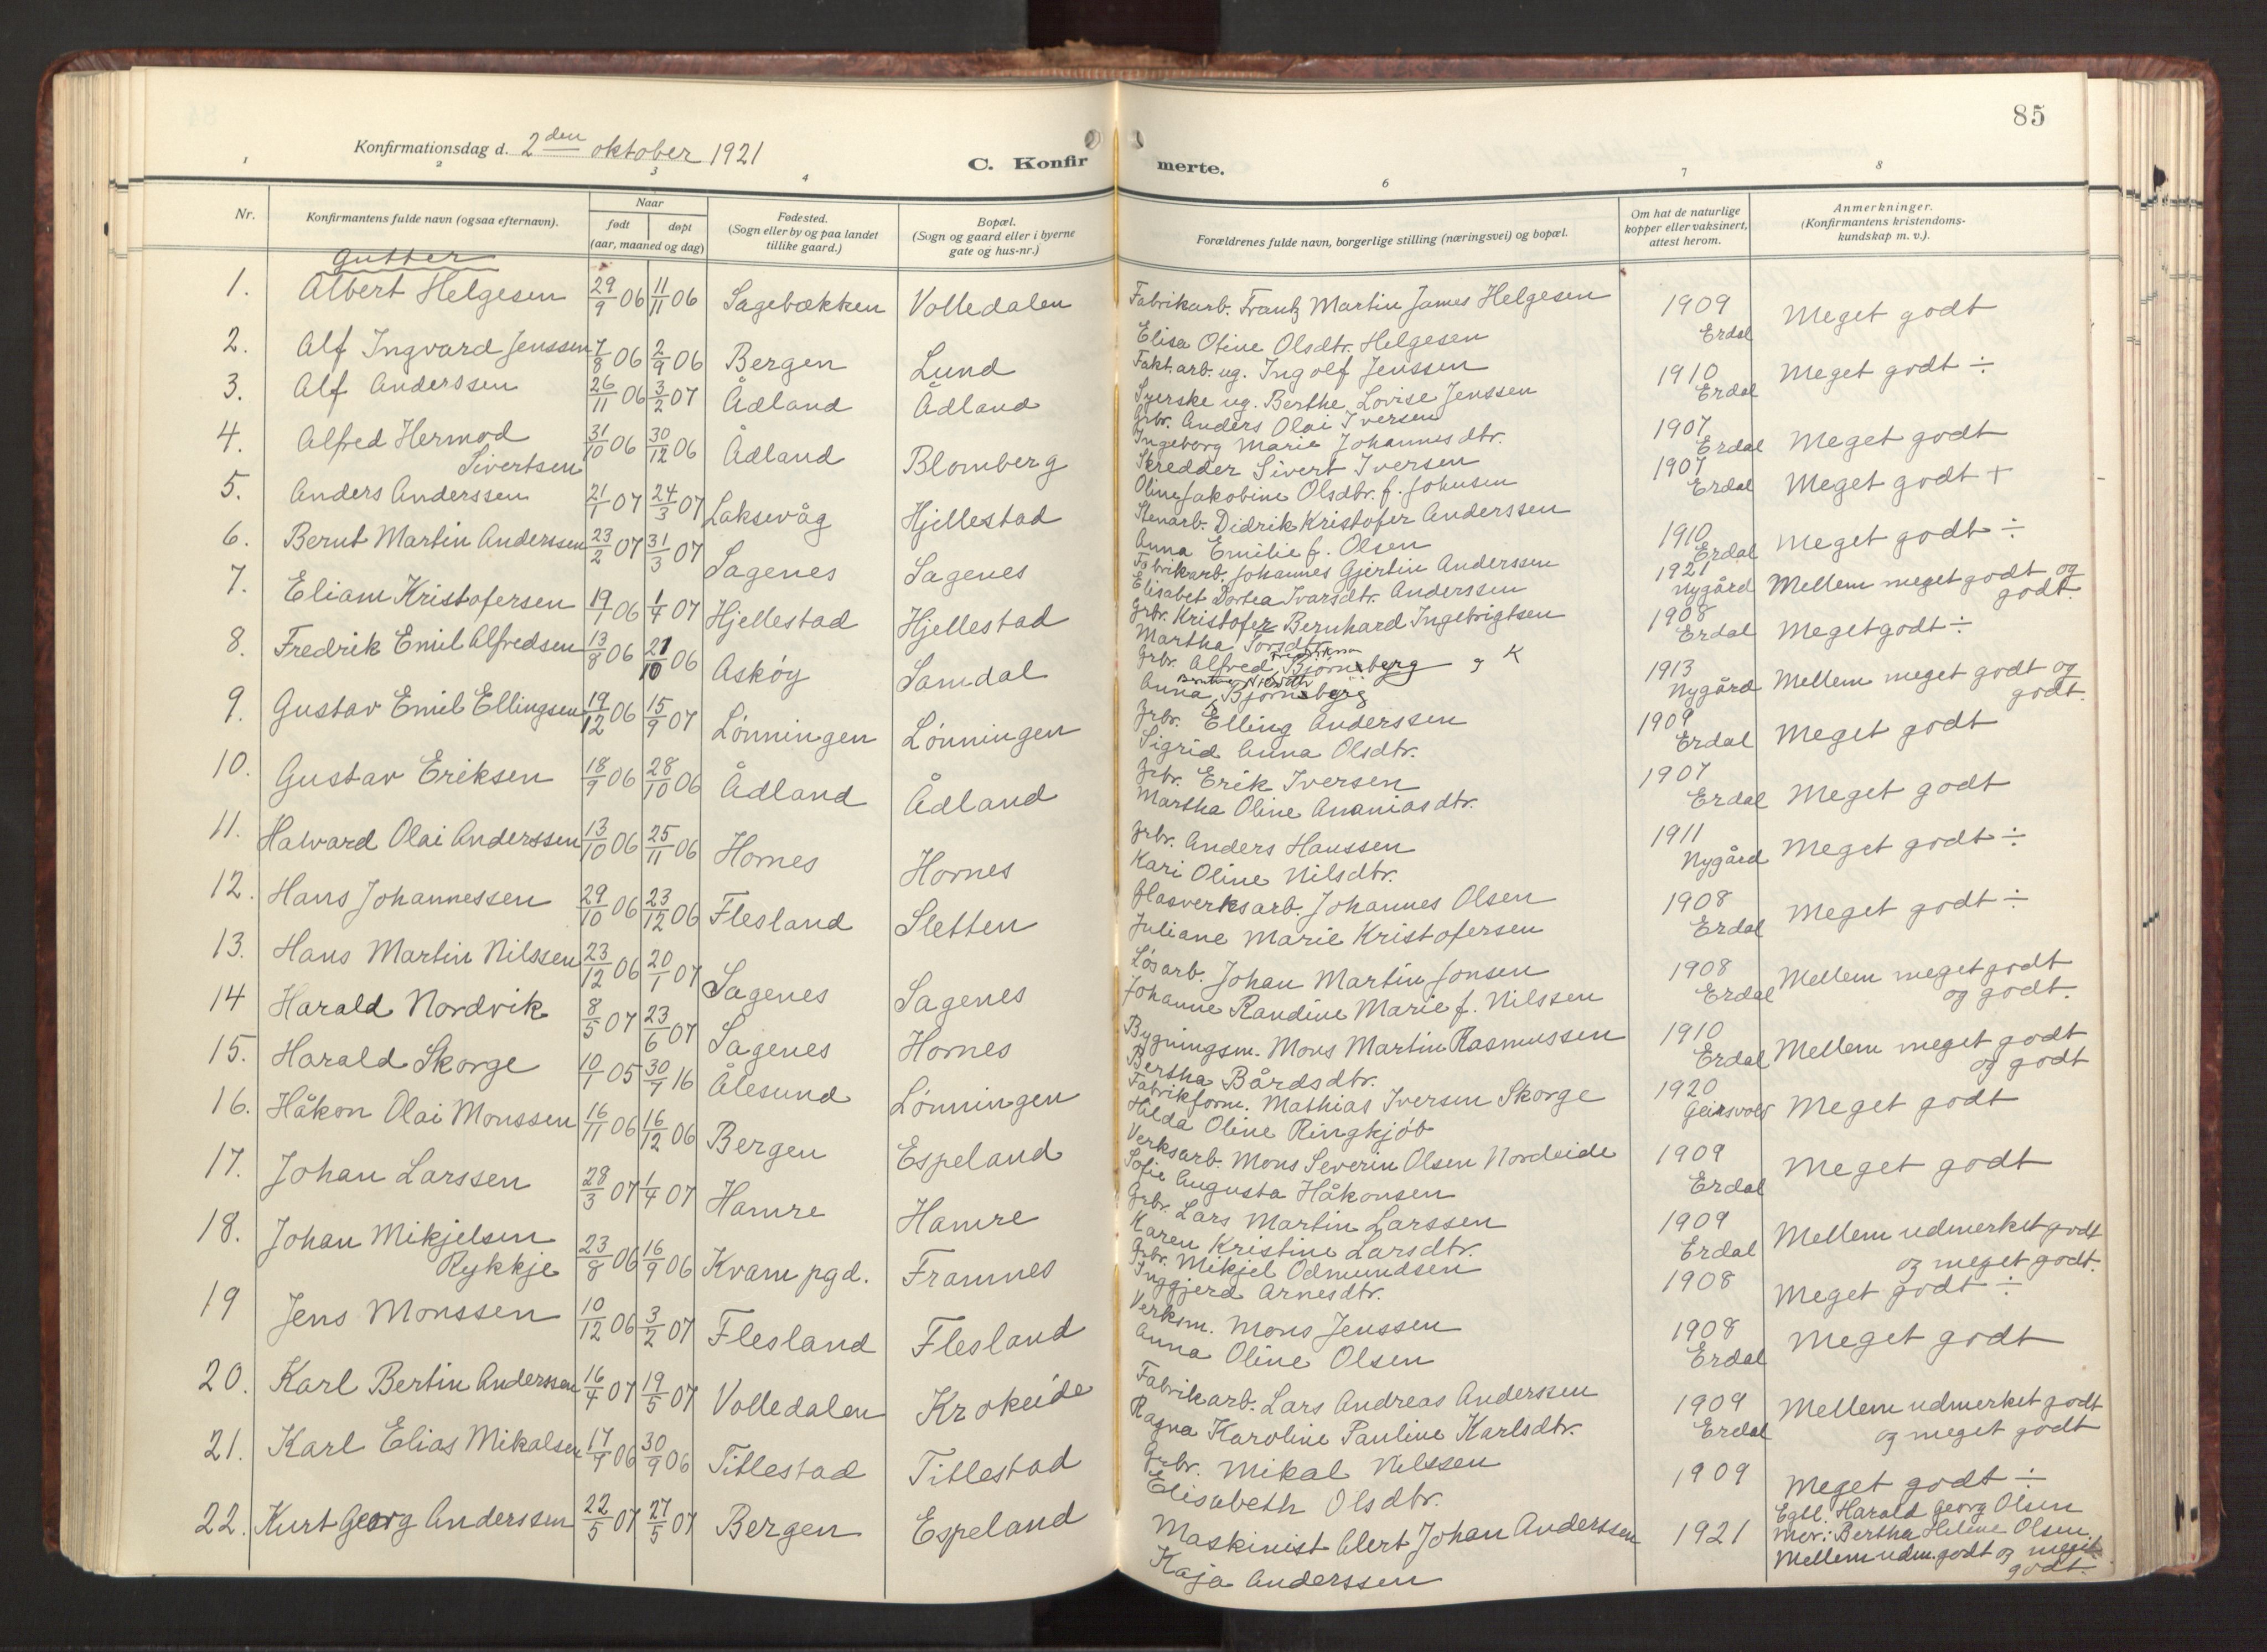 85
Konfirmationsdag d. 2den oktober 1921
C. Konfirmerte.
1 2 3 4 6 7 8
Nr. Konfirmantens fulde navn (ogsaa efternavn). Naar født døpt (aar, maaned og dag) Fødested. (Sogn eller by og paa landet tillike gaard.) Bopæl. (Sogn og gaard eller i byerne gate og hus-nr.) Forældrenes fulde navn, borgerlige stilling (næringsvei) og bopæl. Om hat de naturlige kopper eller vaksinert, attest herom. Anmerkninger. (Konfirmantens kristendoms-kundskap m. v.).
Gutter
1. Albert Helgesen 29/9 06 11/11 06 Sagebækken Volledalen Fabrikarb. Frantz Martin James Helgesen 1909 Meget godt
Elisa Otine Olsdtr. Helgesen Erdal
2. Alf Ingvard Jenssen 7/8 06 2/9 06 Bergen Lund Fakt.arb. ug. Ingolf Jenssen 1910 Meget godt ÷
Syerske ug. Berthe Lovise Jenssen Erdal
3. Alf Anderssen 26/11 06 3/2 07 Ådland Ådland Grbr. Anders Olai Iversen 1907 Meget godt
Ingeborg Marie Johannesdtr. Erdal
4. Alfred Hermod 31/10 06 30/12 06 Ådland Blomberg Skredder Sivert Iversen 1907 Meget godt +
Sivertsen Oline Jakobine Olsdtr. f. Johnsen Erdal
5. Anders Anderssen 21/1 07 24/3 07 Laksevåg Hjellestad Stenarb. Didrik Kristofer Anderssen 1910 Meget godt ÷
Anna Emilie f. Olsen Erdal
6. Bernt Martin Anderssen 23/2 07 31/3 07 Sagenes Sagenes Fabrikarb. Johannes Gjertin Anderssen 1921 Mellem meget godt og
Elisabet Dortea Ivarsdtr. Anderssen Nygård godt.
7. Eliam Kristofersen 19/1 06 1/4 07 Hjellestad Hjellestad Grbr. Kristofer Bernhard Ingebrigtsen 1908 Meget godt ÷
Martha Torsdtr. Erdal
8. Fredrik Emil Alfredsen 13/8 06 21/10 06 Askøy Samdal Grbr. Alfred Bjørnsberg 1913 Mellem meget godt og
Anna Bjørnsberg Nygård godt.
9. Gustav Emil Ellingsen 19/12 06 15/9 07 Lønningen Lønningen Grbr. Elling Anderssen 1909 Meget godt
Sigrid Anna Olsdtr. Erdal
10. Gustav Eriksen 18/9 06 28/10 06 Ådland Ådland Grbr. Erik Iversen 1907 Meget godt
Martha Oline Ananiasdtr. Erdal
11. Halvard Olai Anderssen 13/10 06 25/11 06 Hornes Hornes Grbr. Anders Hanssen 1911 Meget godt ÷
Kari Oline Nilsdtr. Nygård
12. Hans Johannessen 29/10 06 23/12 06 Flesland Sletten Glasverksarb. Johannes Olsen 1908 Meget godt ÷
Juliane Marie Kristofersen Erdal
13. Hans Martin Nilssen 23/12 06 20/1 07 Sagenes Sagenes Løsarb. Johan Martin Jonsen 1908 Mellem meget godt
Johanne Randine Marie f. Nilssen Erdal og godt.
14 Harald Nordvik 8/5 07 23/6 07 Sagenes Hornes Bygningsm. Mons Martin Rasmussen 1910 Mellem meget godt
Bertha Bårdsdtr. Erdal og godt
15. Harald Skorge 10/1 05 30/7 16 Ålesund Lønningen Fabrikform. Mathias Iversen Skorge 1920 Meget godt
Hilda Oline Ringkjøb
16. Håkon Olai Monssen 16/11 06 16/12 06 Bergen Espeland Verksarb. Mons Severin Olsen Nordeide 1909 Meget godt
Sofie Augusta Håkonsen Erdal
17. Johan Larssen 28/3 07 1/4 07 Hamre Hamre Grbr. Lars Martin Larssen 1909 Mellem udmerket godt
Karen Kristine Larsdtr. Erdal og meget godt.
18. Johan Mikjelsen 23/8 06 16/9 06 Kvam pgd. Framnes Grbr. Mikjel Odmundsen 1908 Meget godt ÷
Rykkje Inggjerd Arnesdtr.
19 Jens Monssen 10/12 06 3/2 07 Flesland Flesland Verksm. Mons Jenssen 1908 Meget godt
Anna Oline Olsen Erdal
20. Karl Bertin Anderssen 16/4 07 19/5 07 Volledalen Krokeide Fabrikarb. Lars Andreas Anderssen 1909 Mellem udmerket godt
Ragna Karoline Pauline Karlsdtr. Erdal og meget godt
21. Karl Elias Mikalsen 17/9 06 30/9 06 Titlestad Titlestad Grbr. Mikal Nilssen 1909 Meget godt ÷
Elisabeth Olsdtr.
22. Kurt Georg Anderssen 22/5 07 27/5 07 Bergen Espeland Maskinist Alert Johan Anderssen 1921 Egtl. Harald Georg Olsen
Kaja Anderssen mor: Bertha Helene Olsen.
Mellem udm. godt og meget
godt.